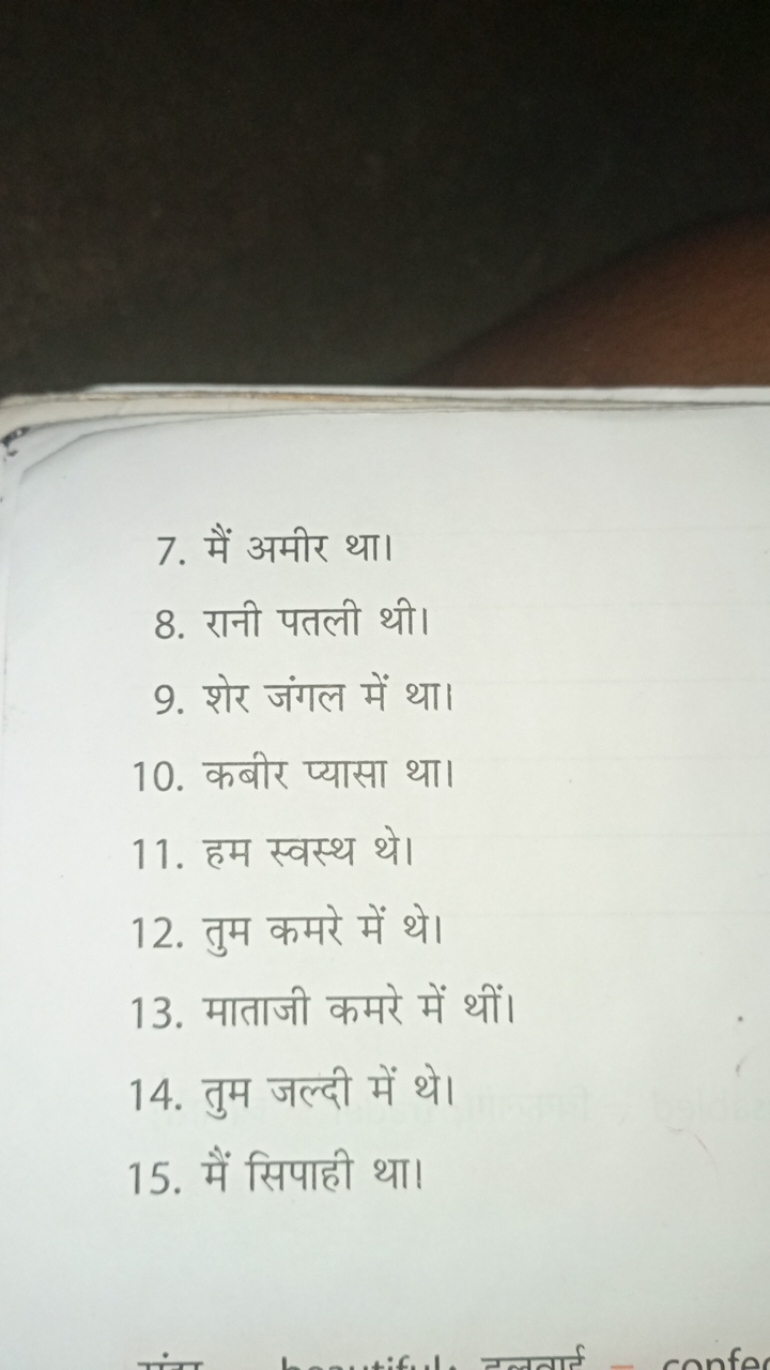 7. मैं अमीर था।
8. रानी पतली थी।
9. शेर जंगल में था।
10. कबीर प्यासा था।
11. हम स्वस्थ थे।
12. तुम कमरे में थे।
13. माताजी कमरे में थीं।
14. तुम जल्दी में थे।
15. मैं सिपाही था।
beautiful; हलवाई –